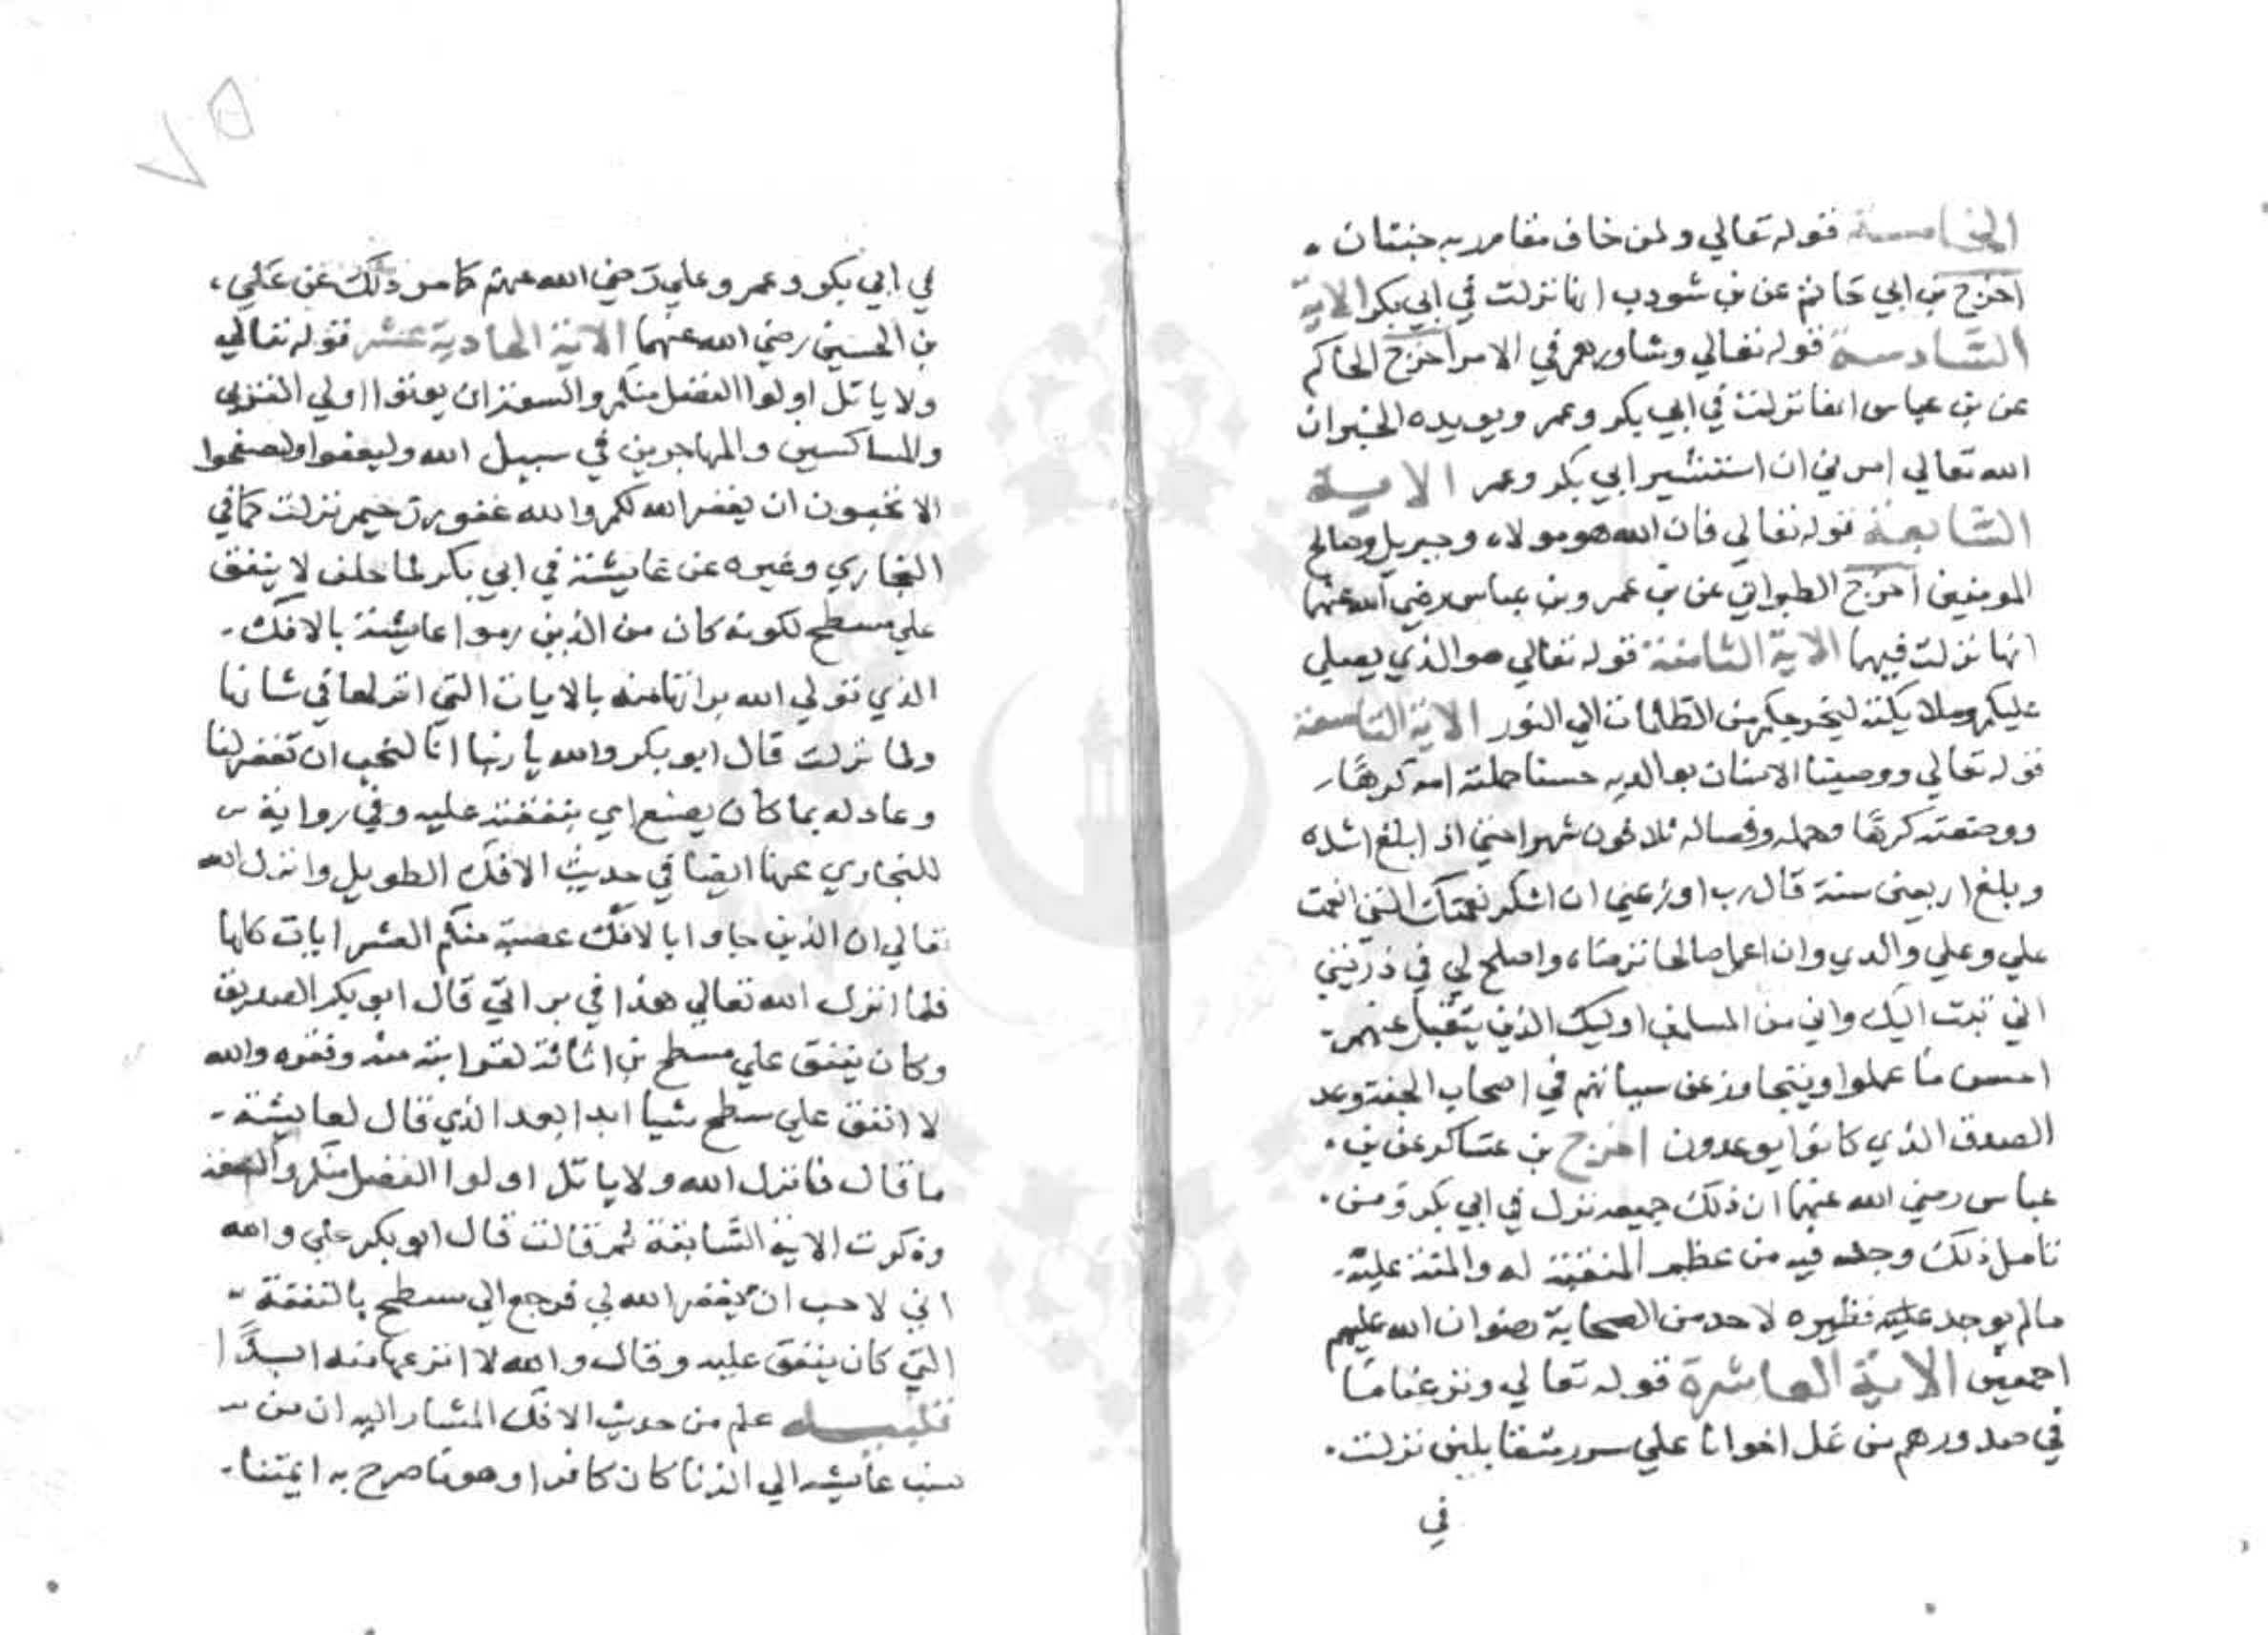 الخامسة قوله تعالي ولمن خاف مقام ربه جنتان
اخرج بن ابي حاتم عن بن شودب انها نزلت في ابي بكر الاية
السادسة قوله تعالي وشاورهم في الامر اخرج الحاكم
عن بن عباس انها نزلت في ابي بكر وعمر ويويده الخبر ان
الله تعالي امرني ان استشير ابي بكر وعمر الاية
السابعة قوله تعالي فان الله هو مولاه وجبريل وصالح
المومنين اخرج الطبراني عن بن عمر وبن عباس رضي الله عنهما
انها نزلت فيهما الاية الثامنة قوله تعالي هو الذي يصلي
عليكم وملايكته ليخرجكم من الظلمات الي النور الاية التاسعة
قوله تعالي ووصينا الانسان بوالديه حسنا حملته امه كرهًا
ووضعته كرهًا وحمله وفصاله ثلاثون شهرا حتي اذا بلغ اشده
وبلغ اربعين سنة قال رب اوزعني ان اشكر نعمتك التي انعمت
علي وعلي والدي وان اعمل صالحا ترضاه واصلح لي في ذريتي
اني تبت اليك واني من المسلمين اوليك الذين يتقبل عنهم
احسن ما عملوا ويتجاوز عن سياتهم في اصحاب الجنة وعد
الصدق الذي كانوا يوعدون اخرج بن عساكر عن بن
عباس رضي الله عنهما ان ذلك جميعه نزل في ابي بكر ومن
تامل ذلك وجد فيه من عظيم المنقبة له والمنة عليه
مالم يوجد نظيره لاحد من الصحابة رضوان الله عليهم
اجمعين الاية العاشرة قوله تعالي ونزعنا ما
في صدورهم من غل اخوانا علي سرر متقابلين نزلت
في
٧٥
في ابي بكر وعمر وعلي رضي الله عنهم كما مر ذلك عن علي
بن الحسين رضي الله عنهما الاية الحادية عشر قوله تعالي
ولا ياتل اولوا الفضل منكم والسعة ان يوتوا اولي القربي
والمساكين والمهاجرين في سبيل الله وليعفوا وليصفحوا
الا تحبون ان يغفر الله لكم والله غفور رحيم نزلت كما في
البخاري وغيره عن عايشة في ابي بكر لما حلف لا ينفق
علي مسطح لكونه كان من الذين رموا عايشة بالافك
الذي تولي الله براتها منه بالايات التي انزلها في شانها
ولما نزلت قال ابو بكر والله يا ربنا انا لنحب ان تغفر لنا
وعاد له بما كان يصنع اي بنفقته عليه وفي رواية
للبخاري عنها ايضا في حديث الافك الطويل وانزل الله
تعالي ان الذين جاوا بالافك عصبة منكم العشر ايات كلها
فلما انزل الله تعالي هذا في براتي قال ابو بكر الصديق
وكان ينفق علي مسطح بن اثاثة لقرابته منه وفقره والله
لا انفق علي مسطح شيا ابدا بعد الذي قال لعايشة
ما قال فانزل الله ولا ياتل اولوا الفضل منكم والسعة
وذكرت الاية السابقة ثم قالت قال ابو بكر بلي والله
اني لاحب ان يغفر الله لي فرجع الي مسطح بالنفقة
التي كان ينفق عليه وقال والله لا انزعها منه ابدًا
تنبيه علم من حديث الافك المشار اليه ان من
نسب عايشه الي الزنا كان كافرا وهو ما صرح به ايمتنا